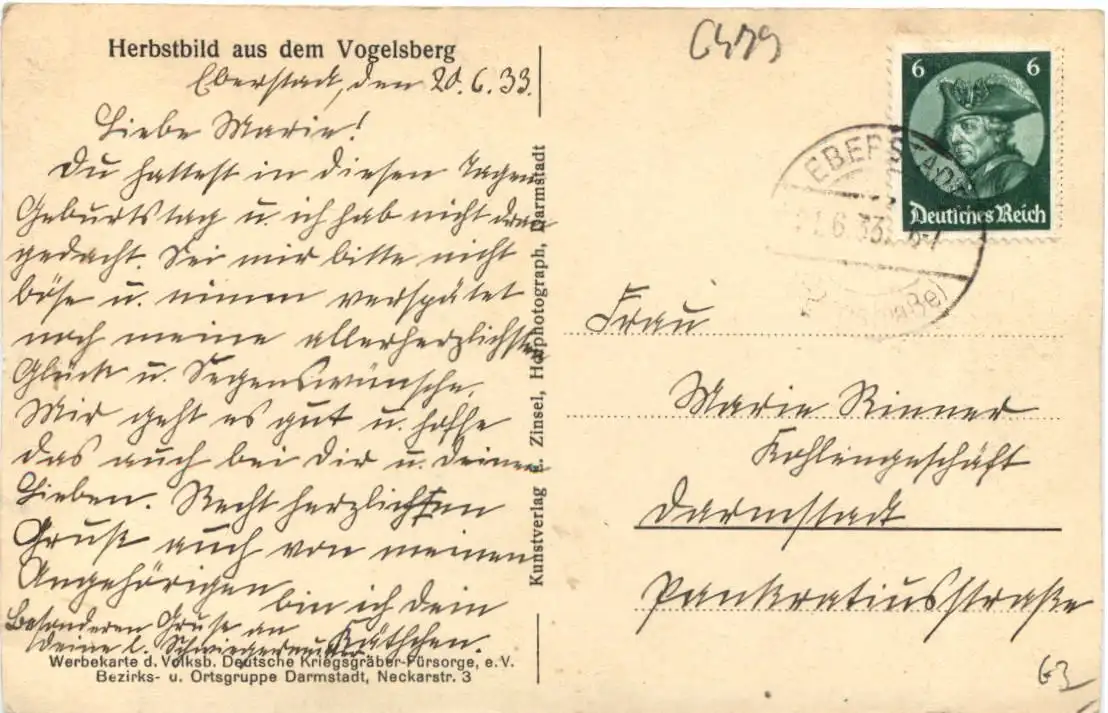 Herbstbild aus dem Vogelsberg
Eberstadt, den 20.6.33.
Liebe Marie!
Du hattest in diesen Tagen
Geburtstag u. ich hab nicht dran
gedacht. Sei mir bitte nicht
böse u. nimm verspätet
noch meine allerherzlichsten
Glück u. Segenswünsche.
Mir geht es gut u. hoffe
das auch bei Dir u. Deinen
Lieben. Recht herzlichen
Gruß auch von meinen
Angehörigen bin ich dein
Käthchen.
Besonderen Gruß an
deine l. Schwiegermutter
Werbekarte d. Volksb. Deutsche Kriegsgräber-Fürsorge, e.V.
Bezirks- u. Ortsgruppe Darmstadt, Neckarstr. 3
Kunstverlag Zinsel, Hofphotograph, Darmstadt
6 6
Deutsches Reich
EBERSTADT
21.6.33. 6-7
Frau
Marie Rinner
Kohlengeschäft
Darmstadt
Pankratiusstraße
63